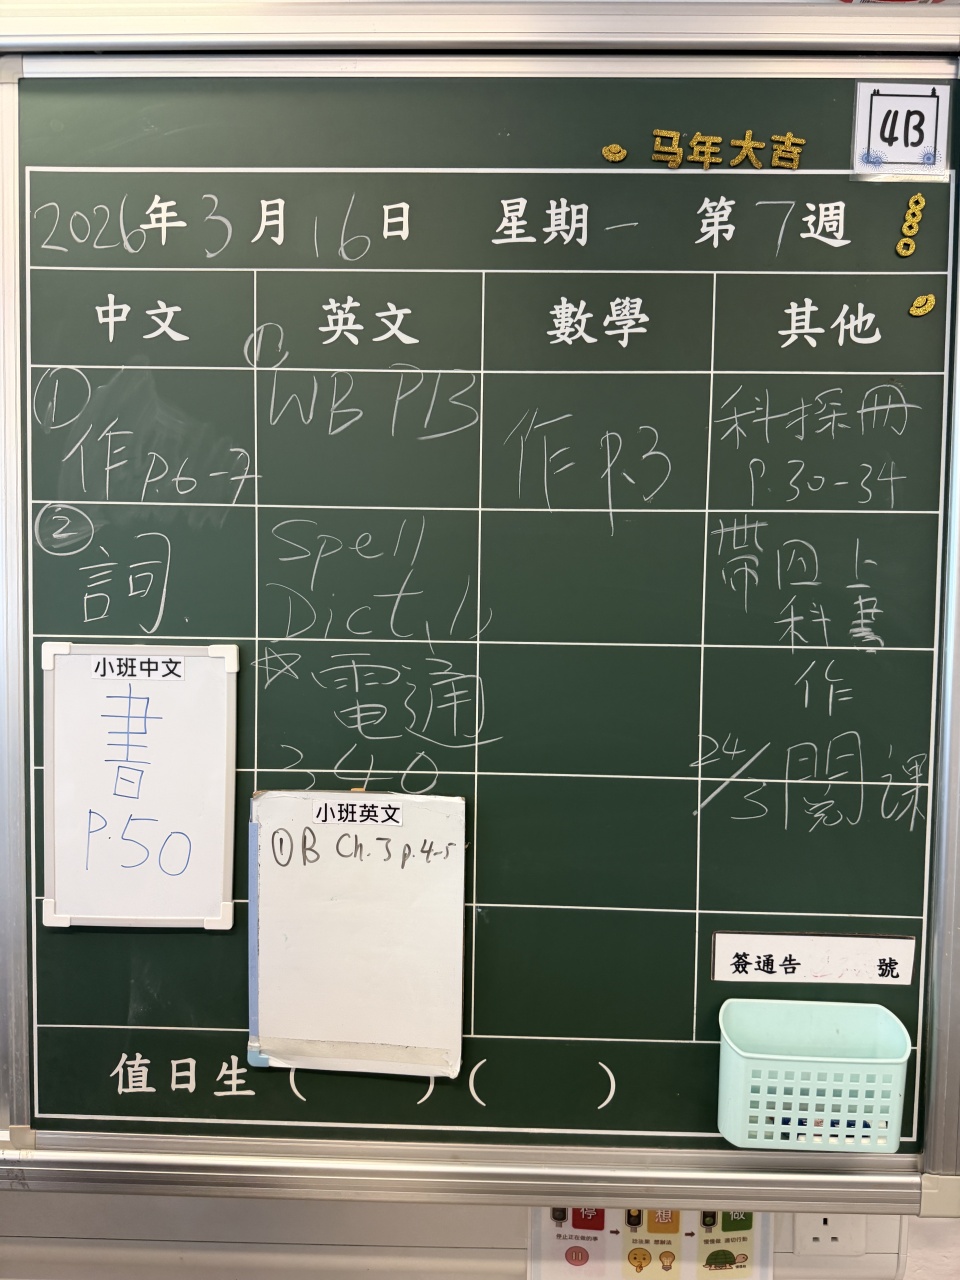 4B
马年大吉
2026年3月16日 星期一 第7週
中文 英文 數學 其他
①
作 P.6-7
②
詞.
小班中文
書
P.50
①
WB P13
Spell
Dict. 1
☆電通
340
小班英文
①B Ch.3 p.4-5
作 P.3
科探冊
P.30-34
帶四上
科書
作
24/3 開課
簽通告 號
值日生 ( ) ( )
停 想 做